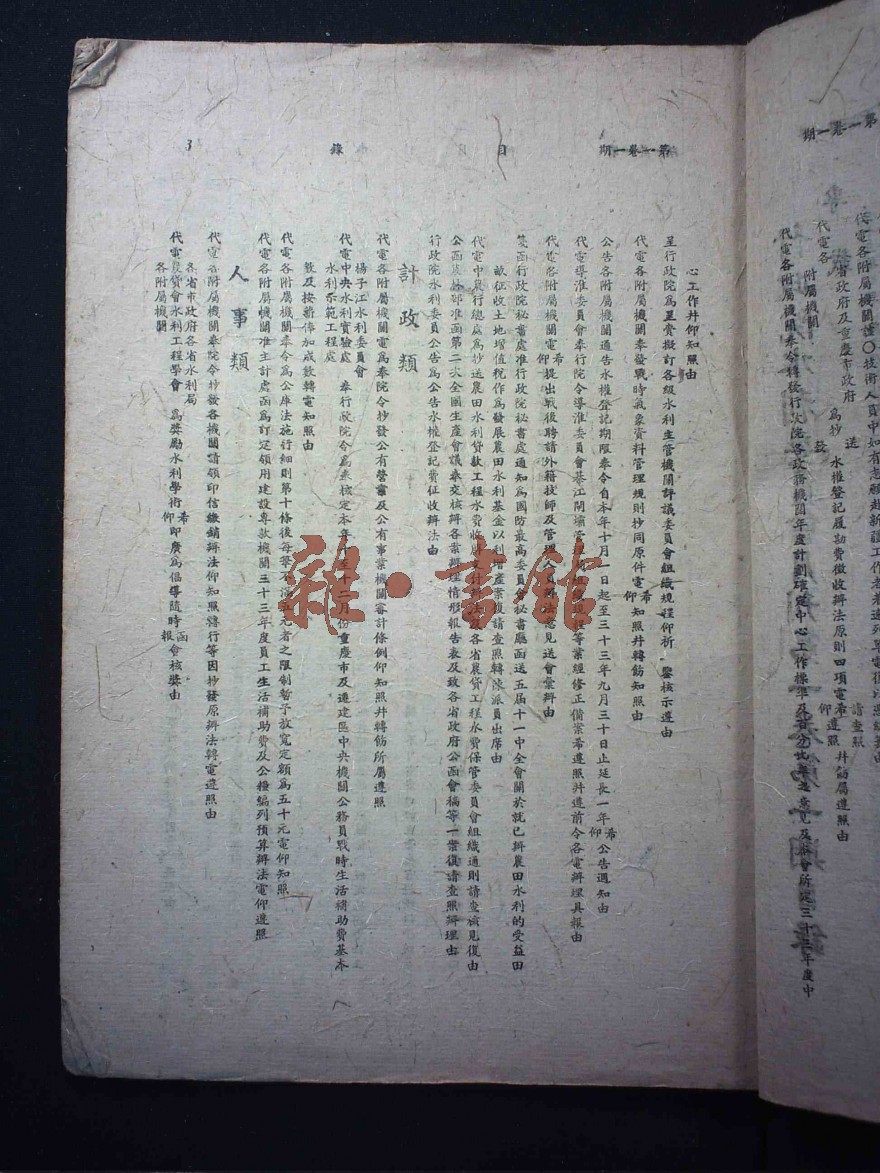 第一卷一期
目
錄
3
心工作并仰知照由
呈行政院爲呈賫擬訂各級水利主管機關評議委員會組織規程仰祈 鑒核示遵由
代電各附屬機關奉發戰時氣象資料管理規則抄同原件電希仰知照并轉飭知照由
公告各附屬機關通告水權登記期限奉令自本年十月一日起至三十三年九月三十日止延長一年希仰公告週知由
代電導淮委員會奉行院令導淮委員會綦江閘壩管理局組織規程等業經修正備案希遵照并遵前令各電辦理具報由
代電各附屬機關電希仰提出戰後聘請外籍技師及管理人員辦法意見送會彙辦由
箋函行政院秘書處准行政院秘書處通知爲國防最高委員會秘書廳函送五屆十一中全會關於就已辦農田水利的受益田
畝征收土地增值稅作爲發展農田水利基金以利增產案復請查照轉陳派員出席由
代電中農行總處爲抄送農田水利貸款工程水費收解支付辦法暨各省農貸工程水費保管委員會組織通則請查核見復由
公函農林部准函第二次全國生產會議奉交核辦各案辦理情形報告表及致各省政府公函會稿等一案復請查照辦理由
行政院水利委員公告爲公告水權登記費征收辦法由
計政類
代電各附屬機關電爲奉院令抄發公有營業及公有事業機關審計條例仰知照并轉飭所屬遵照
揚子江水利委員會
代電中央水利實驗處 奉行政院令爲奉核定本年十至十二月份重慶市及遷建區中央機關公務員戰時生活補助費基本
水利示範工程處
數及按薪俸加成數轉電知照由
代電各附屬機關奉令爲公庫法施行細則第十條後每筆不滿五元者之限制暫予放寬定額爲五十元電仰知照
代電各附屬機關准主計處函爲訂定領用建設專款機關三十三年度員工生活補助費及公糧編列預算辦法電仰遵照
人事類
代電各附屬機關奉院令抄發各機關請領印信繳銷辦法仰知照轉行等因抄發原辦法轉電遵照由
各省市政府各省水利局
代電農貸會水利工程學會 爲獎勵水利學術希仰即廣爲倡導隨時函報會核獎由
各附屬機關
第一卷一期
代電各附屬機關
省政府及重慶市政府
代電各
附屬機關
爲抄送發水權登記履勘費徵收辦法原則四項電希仰請查照遵照并飭屬遵照由
代電各附屬機關奉令轉發行政院各政務機關年度計劃確定中心工作標準及